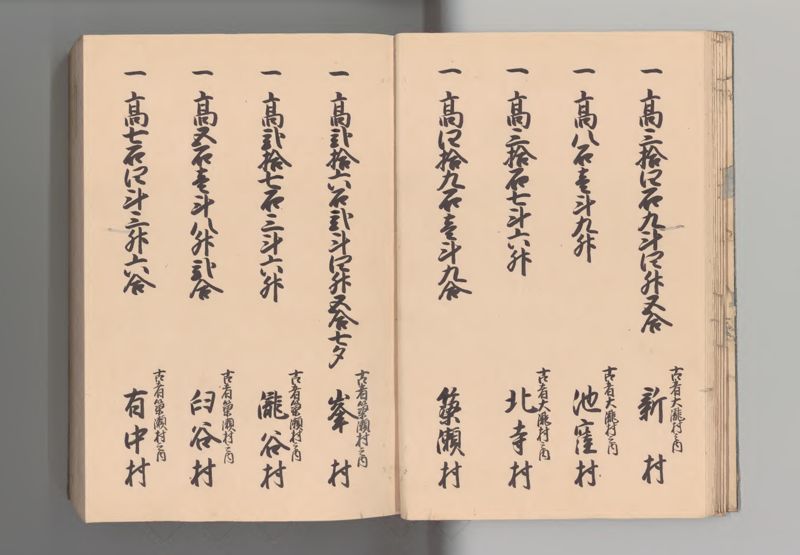 一 高三拾四石九斗四升五合
古者大瀧村之内
新村
一 高八石壱斗九升
古者大瀧村之内
池窪村
一 高三拾石七斗六升
古者大瀧村之内
北寺村
一 高四拾九石壱斗九合
築瀬村
一 高弐拾六石弐斗四升五合七夕
古者築瀬村之内
峯村
一 高弐拾七石三斗六升
古者築瀬村之内
瀧谷村
一 高五石壱斗八升弐合
古者築瀬村之内
臼谷村
一 高七石四斗三升六合
古者築瀬村之内
有中村